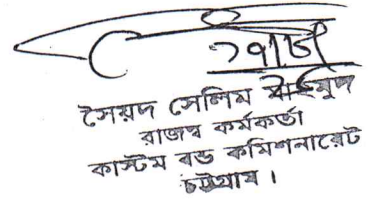 সৈয়দ সেলিম মাহমুদ
রাজস্ব কর্মকর্তা
কাস্টম বন্ড কমিশনারেট
চট্টগ্রাম।